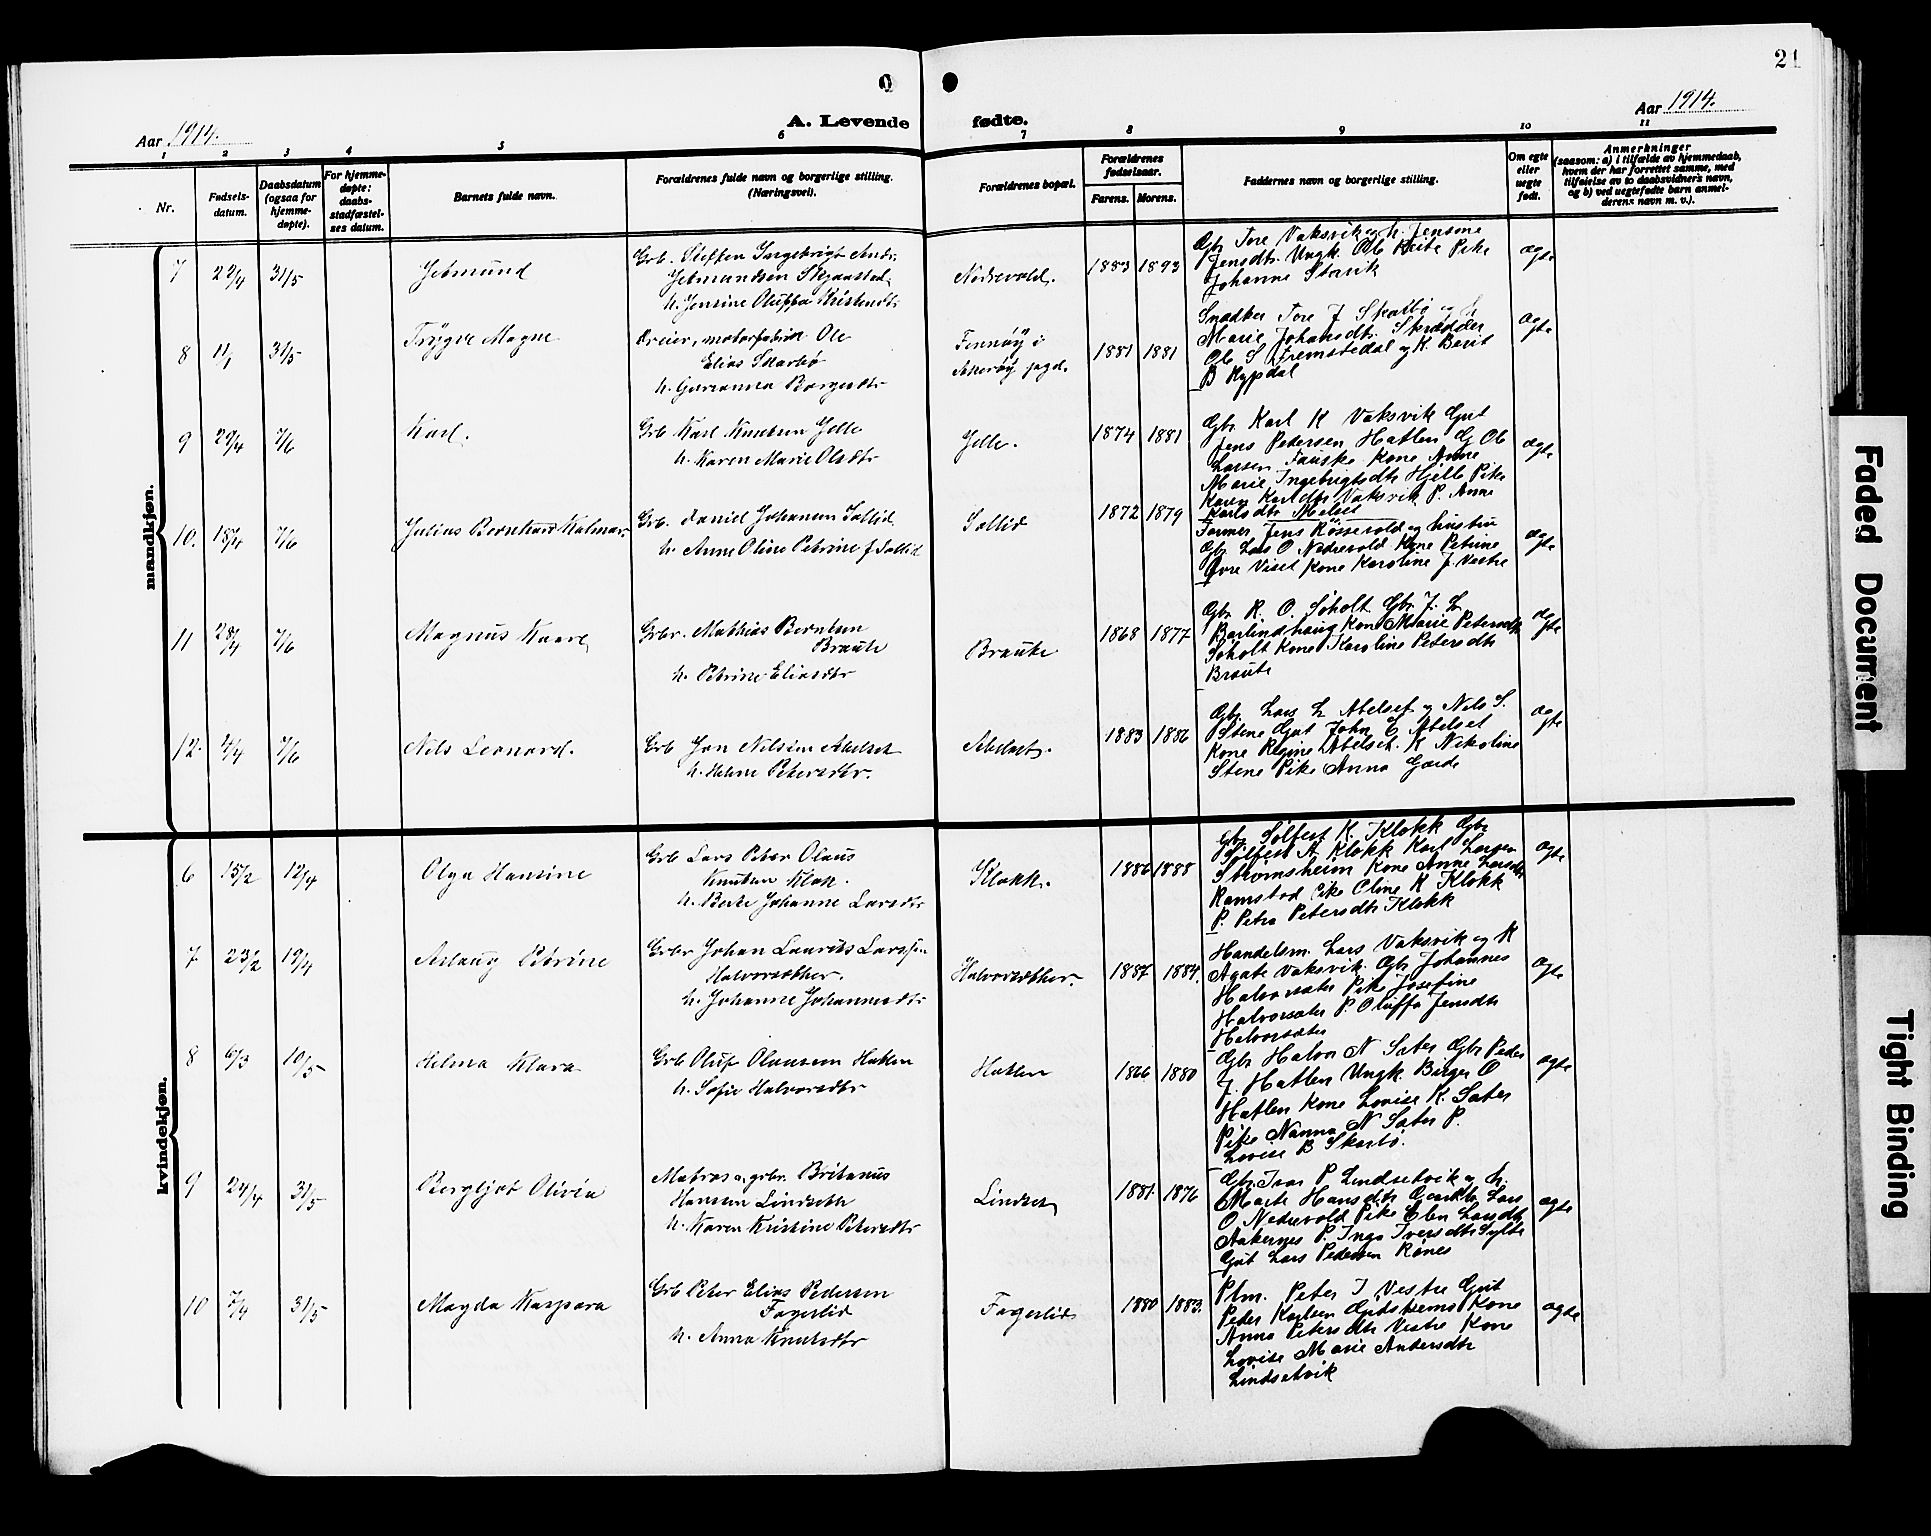 21
Aar 1914.
A. Levende fødte.
Aar 1914.
1 2 3 4 5 6 7 8 9 10 11
Nr.
Fødsels-
datum.
Daabsdatum
(ogsaa for
hjemme-
døpte).
For hjemme-
døpte:
daabs-
stadfæstel-
ses datum.
Barnets fulde navn.
Forældrenes fulde navn og borgerlige stilling.
(Næringsvei).
Forældrenes bopæl.
Forældrenes
fødselsaar.
Farens. Morens.
Faddernes navn og borgerlige stilling.
Om egte
eller
uegte
født.
Anmerkninger
(saasom: a) i tilfælde av hjemmedaab,
hvem der har forrettet samme, med
tilføielse av to daabsvidners navn,
og b) ved uegtefødte barn anmel-
derens navn m. v.).
mandkjøn.
7 22/4 31/5 Jetmund
Grb. Steffen Ingebrigt Andr.
Jetmundsen Skjaastad
h. Jensine Oluffa Kristendtr
Nedrevold. 1883 1893
Gbr Tore Vaksvik og h. Jensine
Jensdtr. Ungk. Ole Pike
Johanne Starvik
ægte
8 31/5 Trygve Magne
Dreier, motorfabrik Ole
Elias Skarbø
h. Gurianna Borgesdtr
Finnøy i
Akerøy pgd. 1881 1881
Snedker Tore J Skarbø og h
Marie Johansdtr. Skrædder
Ole S Fremstedal og K. Berit
B Rypdal
ægte
9 29/4 7/6 Karl.
Grb Karl Knutsen Jelle
h. Karen Marie Olsdtr
Jelle. 1874 1881
Gbr Karl K Vaksvik Gut
Jens Petersen Hatlen G Ole
Larsen Fauske Kone Anne
Marie Ingebrigtsdtr Hjelle Pike
Karen Karlsdtr Vaksvik P. Anne
Karlsdtr Melset
ægte
10. 18/4 7/6 Julius Bernhard Kalmar.
Grb. Daniel Johansen Sollid
h. Anne Oline Petrine J Sollid
Sollid 1872 1879
Former Jens Røssevold og hustru
Gbr Lars O Nedrevold Kone Petrine
Øvre Viset Kone Karoline J. Vestre
ægte
11 28/4 7/6 Magnus Kaare
Grbr. Mathias Berntsen
Braute
h. Petrine Eliasdtr
Braute 1868 1877
Gbr R. O. Søholt Gbr J. L
Berlindhaug Kone Marie Petersdtr
Søholt Kone Karoline Petersdtr
Braute
ægte
12. 4/4 7/6 Nils Leonard.
Grb Jon Nilsen Abelset
h. Helene Petersdtr.
Abelset. 1883 1886
Gbr. Lars L Abelset og Nils S.
Stene Gut John E Abelset
Kone Regine Abelset. K Nikoline
Stene Pike Anna Garde
ægte
kvindekjøn.
6 15/2 12/4 Olga Hansine
Grb Lars Peter Olaus
Knutsen Klok.
h. Berte Johanne Larsdtr
Klokk. 1886 1888
Gbr Sølfest K. Klokk Gbr
Sølfest A Klokk Karl Larsen
Strømsheim Kone Anne Larsdtr
Ramstad Pike Oline K Klokk
P. Petra Petersdtr Klokk
ægte
7 23/2 19/4 Aslaug Perine
Grbr Johan Laurits Larssen
Halvorsæther.
h. Johanne Johannesdtr
Halvorsæther. 1887 1884.
Handelsm. Lars Vaksvik og K
Agate Vaksvik. Gbr Johannes
Halvorsæter Pike Josefine
Halvorsæter P. Oluffa Jensdtr
Halvorsæter
ægte
8 6/3 10/5 Helma Klara
Grb Oluf Olausen Hatlen
h. Sofie Halvorsdtr
Hatlen 1866 1880
Gbr Halvor N Sæter Gbr Peder
J. Hatlen Ungk. Birger O
Hatlen Kone Lovise K. Sæter
Pike Nanna N Sæter P.
Lovise B Skarbø.
ægte
9 24/4 31/5 Bergljot Olivia
Matros og grbr. Britanus
Hansen Lindseth
h. Karen Kristine Petersdtr
Lindset 1881. 1876
Gbr Ivar P Lindsetvik og h.
Marte Hansdtr Gaardbr Lars
O Nedrevold Pike Elen Larsdtr
Aakernes P. Inga Iversdtr Sylte
Gut Lars Pedersen Rønes
ægte
10 7/4 31/5 Magda Kaspara
Grb Peter Elias Pedersen
Fagerlid
h. Anna Knutsdtr
Fagerlid 1880 1883.
Plm. Peter I Vestre Gut
Peder Karlsen Gjedskrems Kone
Anna Petersdtr Vestre Kone
Lovise Marie Andersdtr
Lindsetvik
ægte
Faded Document
Tight Binding